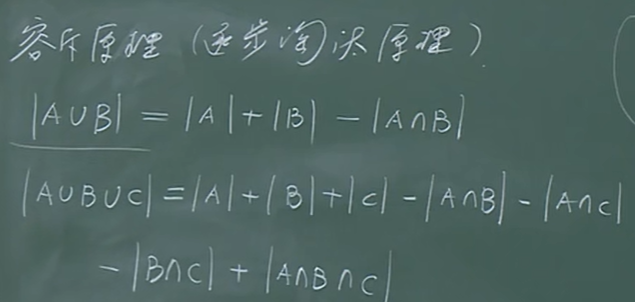 容斥原理(逐步淘汰原理)
|A∪B| = |A|+|B| -|A∩B|
|A∪B∪C| =|A|+|B|+|C| -|A∩B| -|A∩C|
-|B∩C| + |A∩B∩C|